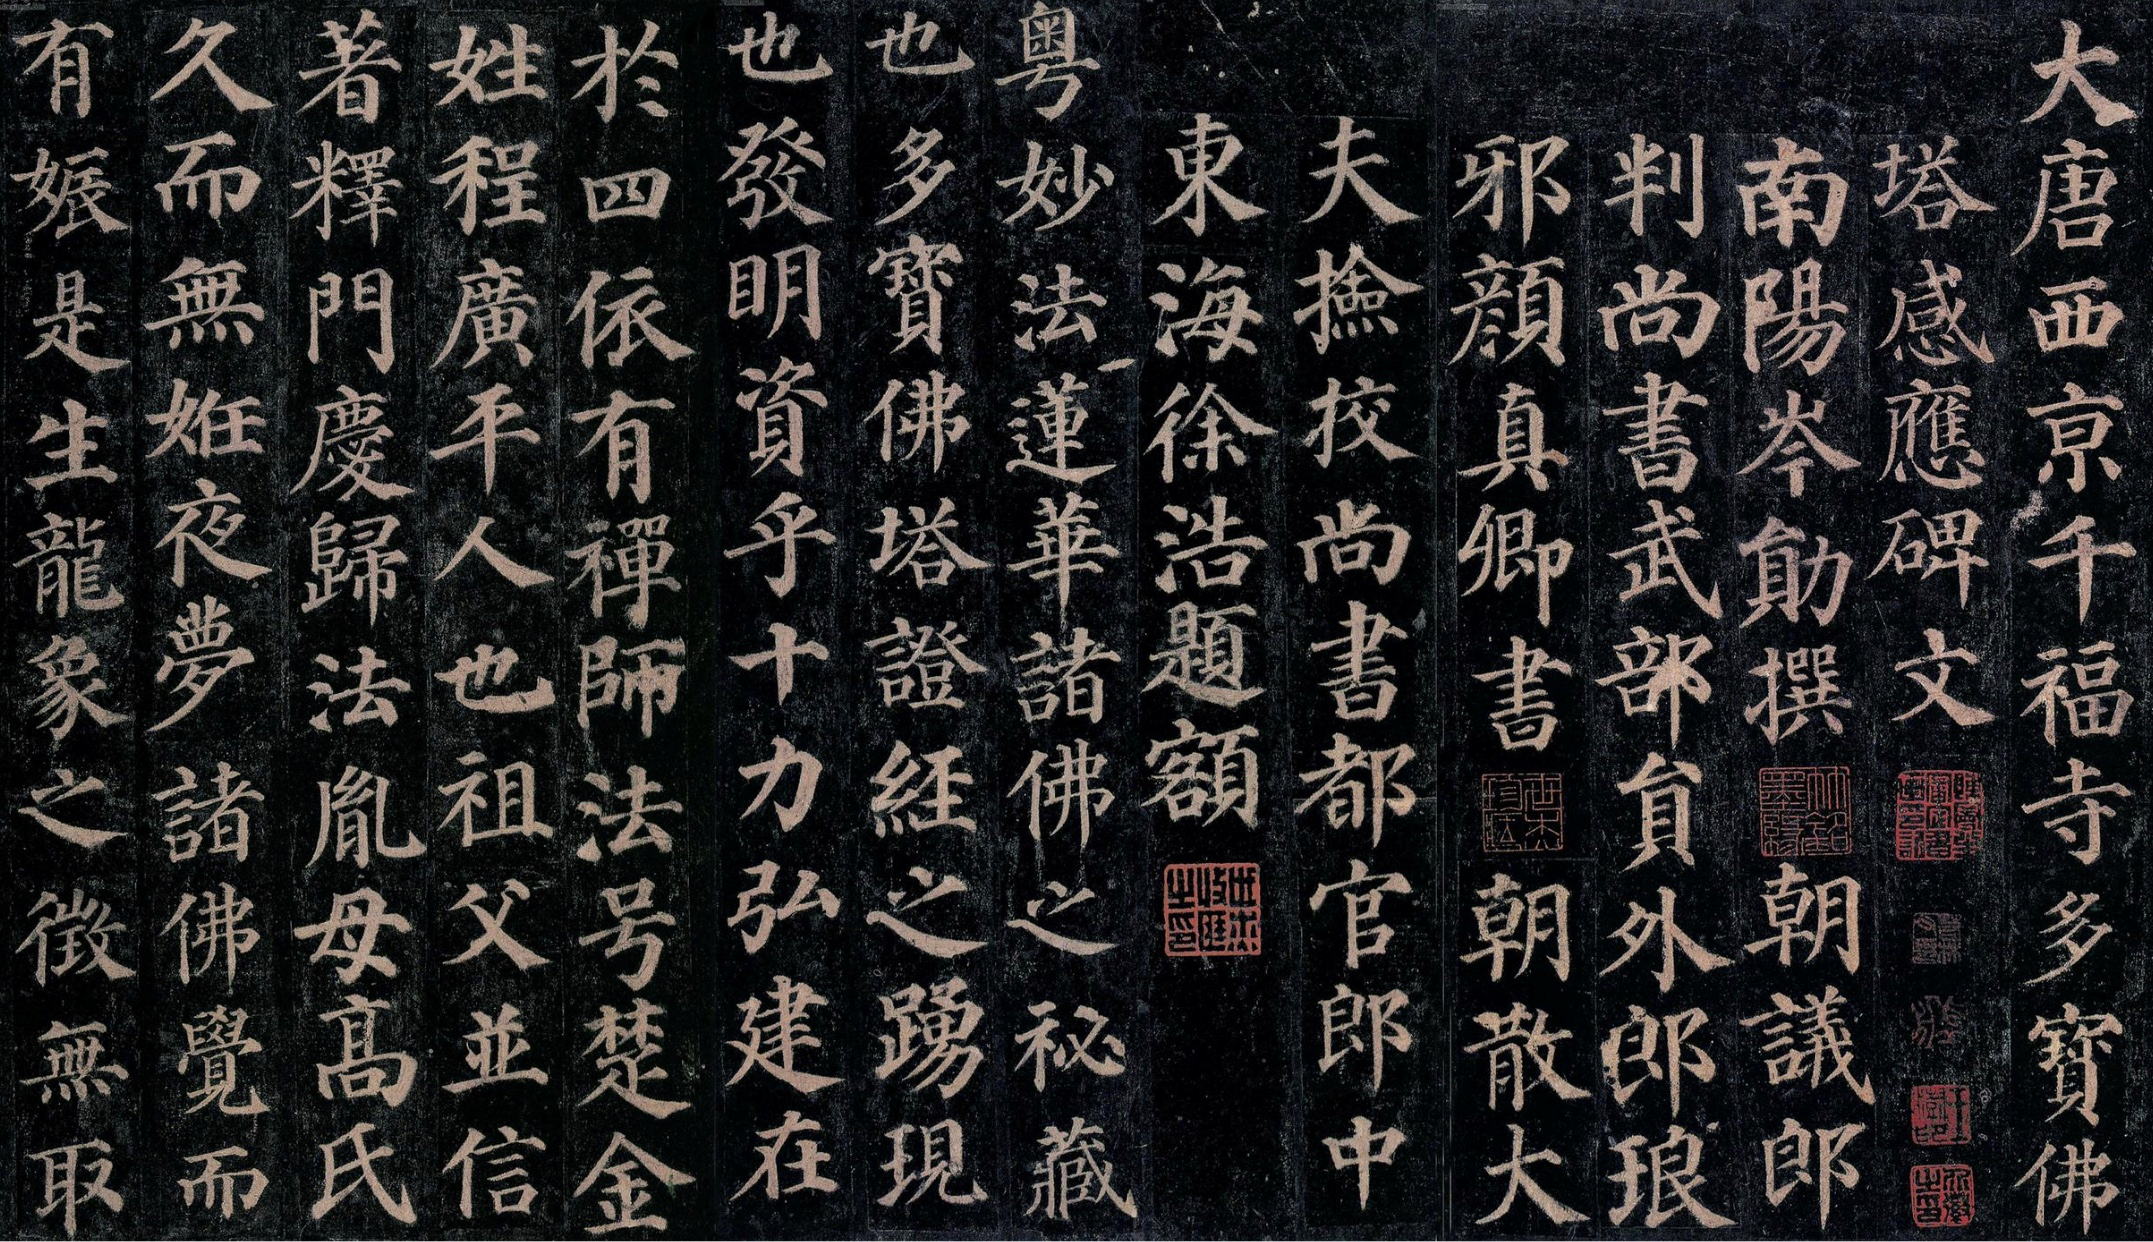 大唐西京千福寺多寶佛
塔感應碑文
南陽岑勛撰朝議郎
判尚書武部員外郎琅
邪顏真卿書朝散大
夫撿挍尚書都官郎中
東海徐浩題額
粵妙法蓮華諸佛之祕藏
也多寶佛塔證經之踴現
也發明資乎十力弘建在
於四依有禪師法号楚金
姓程廣平人也祖父並信
著釋門慶歸法胤母高氏
久而無姙夜夢諸佛覺而
有娠是生龍象之徵無取